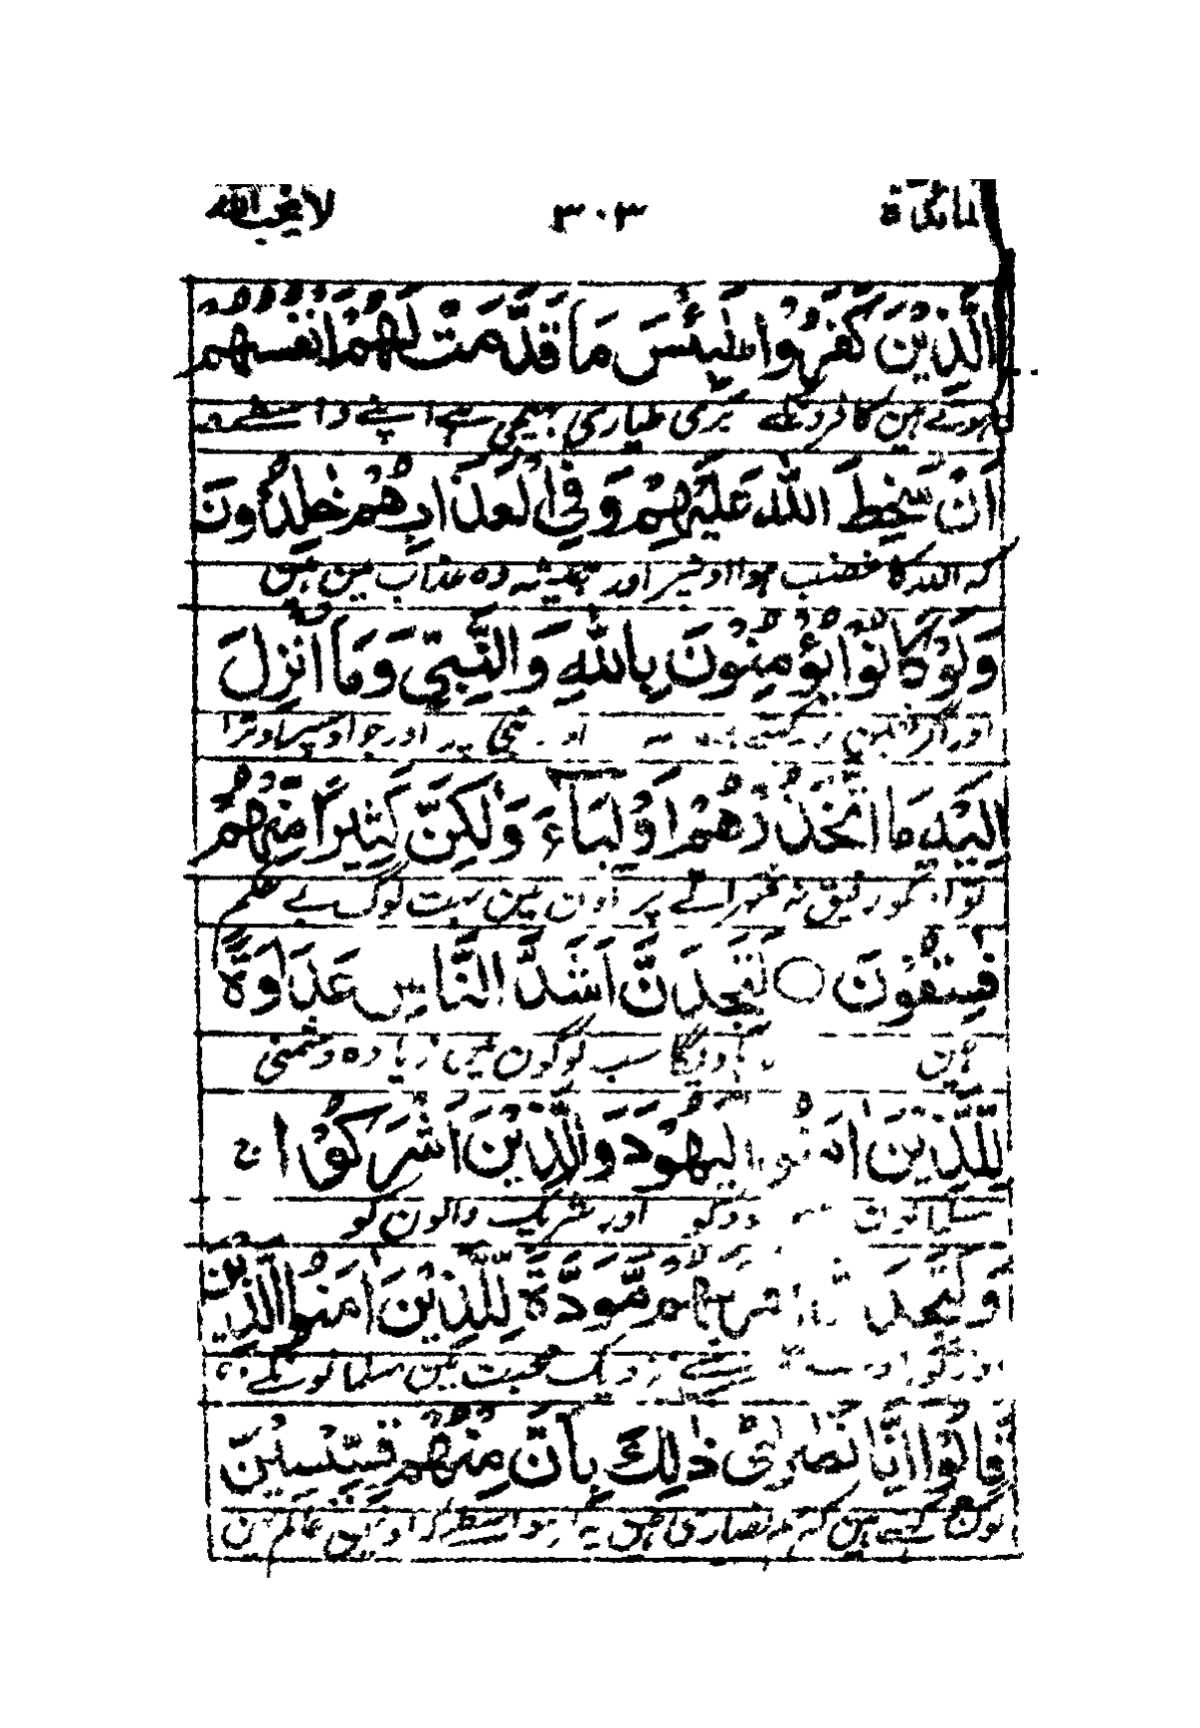 المائدة ٣٠٣ لا يحب الله
الَّذِيْنَ كَفَرُوْا لَبِئْسَ مَا قَدَّمَتْ لَهُمْ اَنْفُسُهُمْ
ہوئے ہین کافرونکے بری طیاری بھیجی ہے اپنے واسطے
اَنْ سَخِطَ اللّٰهُ عَلَيْهِمْ وَفِي الْعَذَابِ هُمْ خٰلِدُوْنَ
کہ اللہ کا غضب ہوا اونپر اور ہمیشہ وہ عذاب مین ہین
وَلَوْ كَانُوْا يُؤْمِنُوْنَ بِاللّٰهِ وَالنَّبِيِّ وَمَا اُنْزِلَ
اور اگر یقین رکھتے اور نبی پر اور جو اوسپر اوترا
اِلَيْهِ مَا اتَّخَذُوْهُمْ اَوْلِيَآءَ وَلٰكِنَّ كَثِيْرًا مِّنْهُمْ
تو اونکو رفیق نہ ٹھہراتے پر اون مین بہت لوگ بے حکم
فٰسِقُوْنَ ○ لَتَجِدَنَّ اَشَدَّ النَّاسِ عَدَاوَةً
ہین سب لوگون مین زیادہ دشمنی
لِّلَّذِيْنَ اٰمَنُوا الْيَهُوْدَ وَالَّذِيْنَ اَشْرَكُوْا ج
اور شریک والون کو
وَلَتَجِدَنَّ اَقْرَبَهُمْ مَّوَدَّةً لِّلَّذِيْنَ اٰمَنُوا الَّذِيْنَ
نزدیک محبت مین مسلمانونکے
قَالُوْا اِنَّا نَصٰرٰى ذٰلِكَ بِاَنَّ مِنْهُمْ قِسِّيْسِيْنَ
لوگ کہتے ہین کہ ہم نصاری ہین یہ اسواسطے کہ اونمین عالم ہین